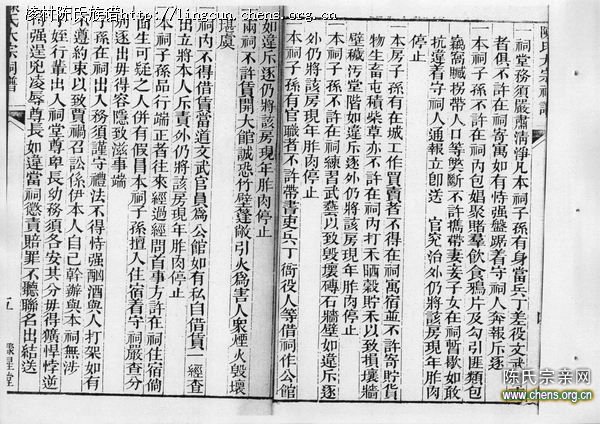 陵村陈氏族谱 - http://lingcun.chens.org/
陳氏大宗祠譜
一祠堂務須嚴肅清淨凡本祠子孫有身當兵丁差役文武
者俱不許在祠寄寓如有恃强盤踞着守祠人奔報斥逐
一本祠子孫不許在祠內包娼聚賭羣飲食鴉片及勾引匪類包
竊窩贓拐帶人口等獘斷不許攜帶妻妾子女在祠暫歇如敢
抗違着守祠人通報立卽送 官究治外仍將該房現年胙肉
停止
一本房子孫有在城工作買賣者不得在祠寓宿並不許寄貯貨
物生畜屯積柴草亦不許在祠內打禾晒穀貯禾以致損壞牆
壁穢汚堂階如違斥逐外仍將該房現年胙肉停止
一本祠子孫不許在祠練習武藝以致毀壞磚石牆壁如違斥逐
外仍將該房現年胙肉停止
一本祠子孫有官職者不許帶書吏兵丁衙役人等借祠作公館
如違斥逐仍將該房現年胙肉停止
一兩祠不許賃開大館誠恐竹壁蓬敞引火爲害人衆煙火毀壞
堪虞
一祠內不得借賃當道文武官員爲公館如有私自借賃一經查
出立將本人斥責外仍將該房現年胙肉停止
祠子孫品行端正者往來經過經問首事方許在祠住宿倘
面生可疑之人併有假冒本祠子孫擅入住宿着守祠嚴查分
別逐出毋得容隱致滋事端
子孫在祠出入務須謹守禮法不得恃强酗酒與人打架如有
不遵約束以致賈禍召訟係伊本人自己幹辦與本祠無涉
子姪行輩出入祠堂尊卑長幼務須各安其分毋得獷悍悖逆
恃强逞兇凌辱尊長如違當祠懲責賠罪不聽聯名出結送
五
氏大宗祠譜
陈氏宗亲网
www.chens.org.cn